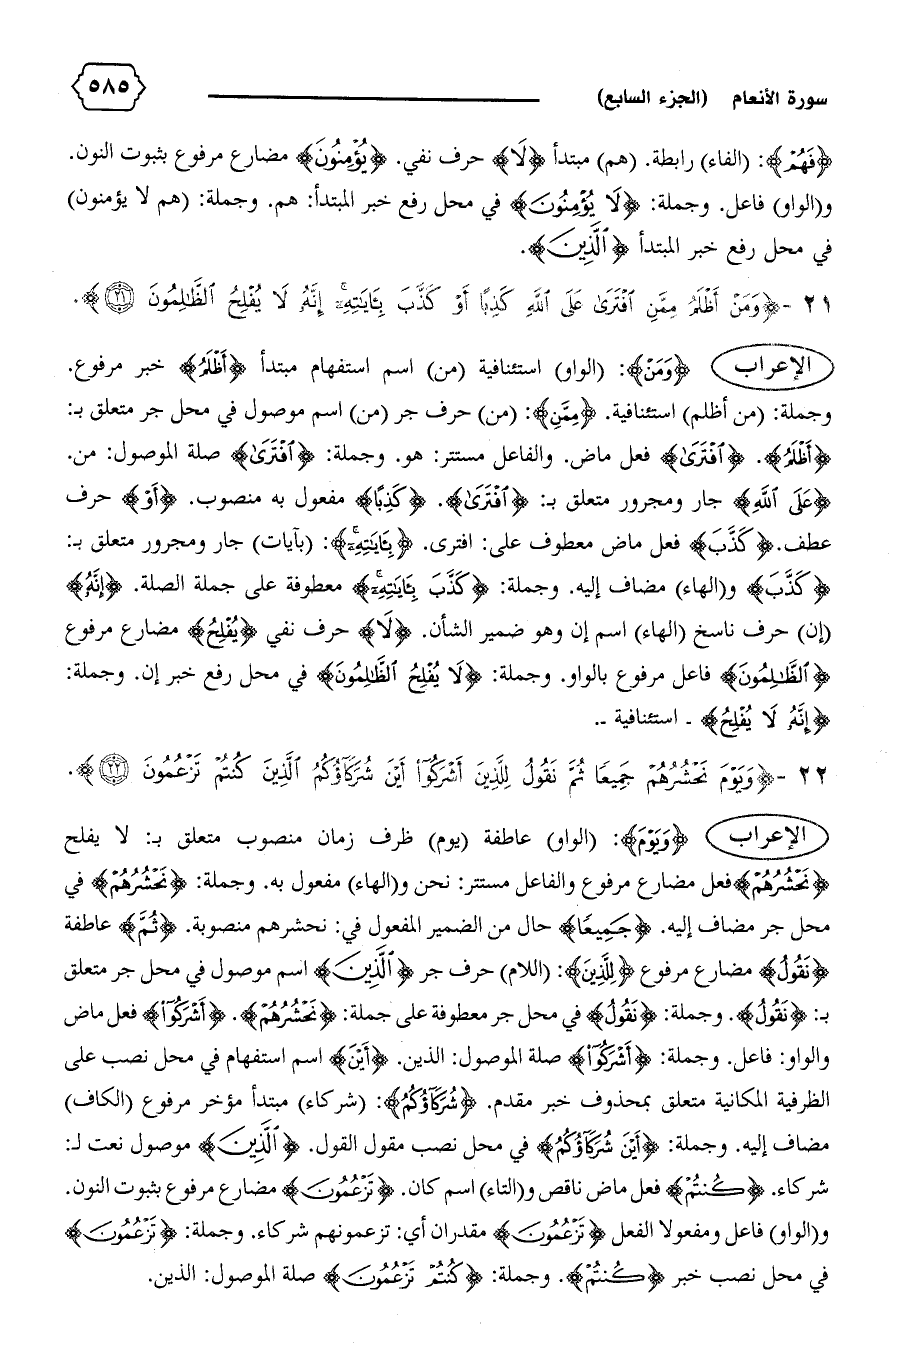 سورة الأنعام (الجزء السابع) ٥٨٥
﴿فَهُمْ﴾: (الفاء) رابطة. (هم) مبتدأ ﴿لَا﴾ حرف نفي. ﴿يُؤْمِنُونَ﴾ مضارع مرفوع بثبوت النون.
و(الواو) فاعل. وجملة: ﴿لَا يُؤْمِنُونَ﴾ في محل رفع خبر المبتدأ: هم. وجملة: (هم لا يؤمنون)
في محل رفع خبر المبتدأ ﴿ٱلَّذِينَ﴾.
٢١ - ﴿وَمَنْ أَظْلَمُ مِمَّنِ ٱفْتَرَىٰ عَلَى ٱللَّهِ كَذِبًا أَوْ كَذَّبَ بِـَٔايَٰتِهِۦٓ إِنَّهُۥ لَا يُفْلِحُ ٱلظَّٰلِمُونَ ۝٢١﴾.
الإعراب ﴿وَمَنْ﴾: (الواو) استئنافية (من) اسم استفهام مبتدأ ﴿أَظْلَمُ﴾ خبر مرفوع.
وجملة: (من أظلم) استئنافية. ﴿مِمَّنِ﴾: (من) حرف جر (من) اسم موصول في محل جر متعلق بـ:
﴿أَظْلَمُ﴾. ﴿ٱفْتَرَىٰ﴾ فعل ماض. والفاعل مستتر: هو. وجملة: ﴿ٱفْتَرَىٰ﴾ صلة الموصول: من.
﴿عَلَى ٱللَّهِ﴾ جار ومجرور متعلق بـ: ﴿ٱفْتَرَىٰ﴾. ﴿كَذِبًا﴾ مفعول به منصوب. ﴿أَوْ﴾ حرف
عطف. ﴿كَذَّبَ﴾ فعل ماض معطوف على: افترى. ﴿بِـَٔايَٰتِهِۦٓ﴾: (بآيات) جار ومجرور متعلق بـ:
﴿كَذَّبَ﴾ و(الهاء) مضاف إليه. وجملة: ﴿كَذَّبَ بِـَٔايَٰتِهِۦٓ﴾ معطوفة على جملة الصلة. ﴿إِنَّهُۥ﴾
(إن) حرف ناسخ (الهاء) اسم إن وهو ضمير الشأن. ﴿لَا﴾ حرف نفي ﴿يُفْلِحُ﴾ مضارع مرفوع
﴿ٱلظَّٰلِمُونَ﴾ فاعل مرفوع بالواو. وجملة: ﴿لَا يُفْلِحُ ٱلظَّٰلِمُونَ﴾ في محل رفع خبر إن. وجملة:
﴿إِنَّهُۥ لَا يُفْلِحُ﴾ ـ استئنافية ـ.
٢٢ - ﴿وَيَوْمَ نَحْشُرُهُمْ جَمِيعًا ثُمَّ نَقُولُ لِلَّذِينَ أَشْرَكُوٓا۟ أَيْنَ شُرَكَآؤُكُمُ ٱلَّذِينَ كُنتُمْ تَزْعُمُونَ ۝٢٢﴾.
الإعراب ﴿وَيَوْمَ﴾: (الواو) عاطفة (يوم) ظرف زمان منصوب متعلق بـ: لا يفلح
﴿نَحْشُرُهُمْ﴾ فعل مضارع مرفوع والفاعل مستتر: نحن و(الهاء) مفعول به. وجملة: ﴿نَحْشُرُهُمْ﴾ في
محل جر مضاف إليه. ﴿جَمِيعًا﴾ حال من الضمير المفعول في: نحشرهم منصوبة. ﴿ثُمَّ﴾ عاطفة
﴿نَقُولُ﴾ مضارع مرفوع ﴿لِلَّذِينَ﴾: (اللام) حرف جر ﴿ٱلَّذِينَ﴾ اسم موصول في محل جر متعلق
بـ: ﴿نَقُولُ﴾. وجملة: ﴿نَقُولُ﴾ في محل جر معطوفة على جملة: ﴿نَحْشُرُهُمْ﴾. ﴿أَشْرَكُوٓا۟﴾ فعل ماض
والواو: فاعل. وجملة: ﴿أَشْرَكُوٓا۟﴾ صلة الموصول: الذين. ﴿أَيْنَ﴾ اسم استفهام في محل نصب على
الظرفية المكانية متعلق بمحذوف خبر مقدم. ﴿شُرَكَآؤُكُمُ﴾: (شركاء) مبتدأ مؤخر مرفوع (الكاف)
مضاف إليه. وجملة: ﴿أَيْنَ شُرَكَآؤُكُمُ﴾ في محل نصب مقول القول. ﴿ٱلَّذِينَ﴾ موصول نعت لـ:
شركاء. ﴿كُنتُمْ﴾ فعل ماض ناقص و(التاء) اسم كان. ﴿تَزْعُمُونَ﴾ مضارع مرفوع بثبوت النون.
و(الواو) فاعل ومفعولا الفعل ﴿تَزْعُمُونَ﴾ مقدران أي: تزعمونهم شركاء. وجملة: ﴿تَزْعُمُونَ﴾
في محل نصب خبر ﴿كُنتُمْ﴾. وجملة: ﴿كُنتُمْ تَزْعُمُونَ﴾ صلة الموصول: الذين.